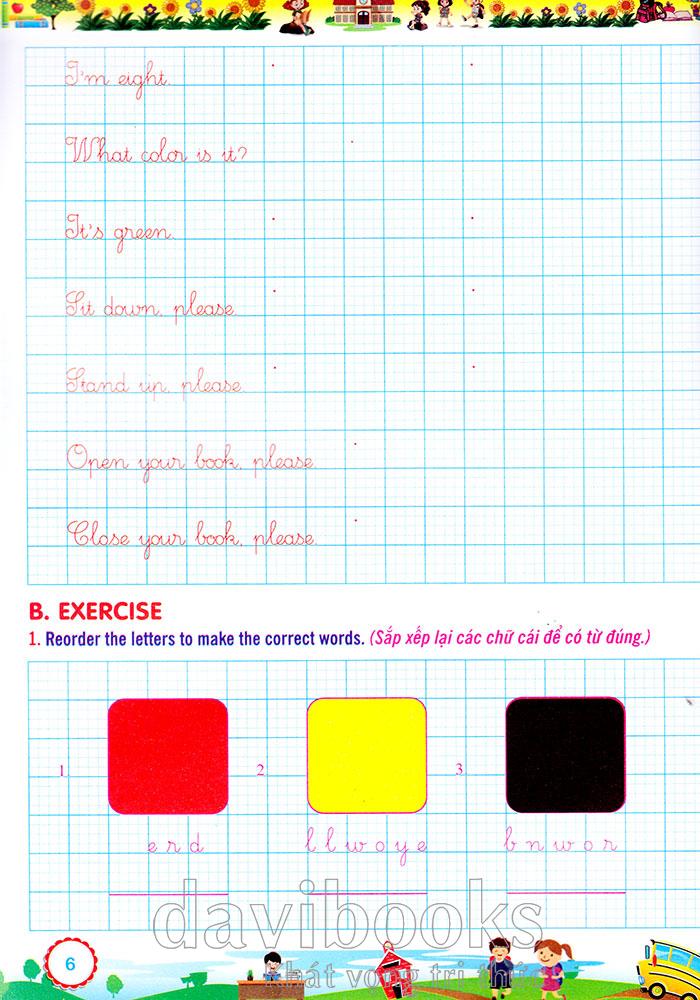 I'm eight.
What color is it?
It's green.
Sit down, please.
Stand up, please.
Open your book, please.
Close your book, please.
B. EXERCISE
1. Reorder the letters to make the correct words. (Sắp xếp lại các chữ cái để có từ đúng.)
1. 2. 3.
e r d l l w o y e b n w o r
davibooks
khát vọng tri thức
6